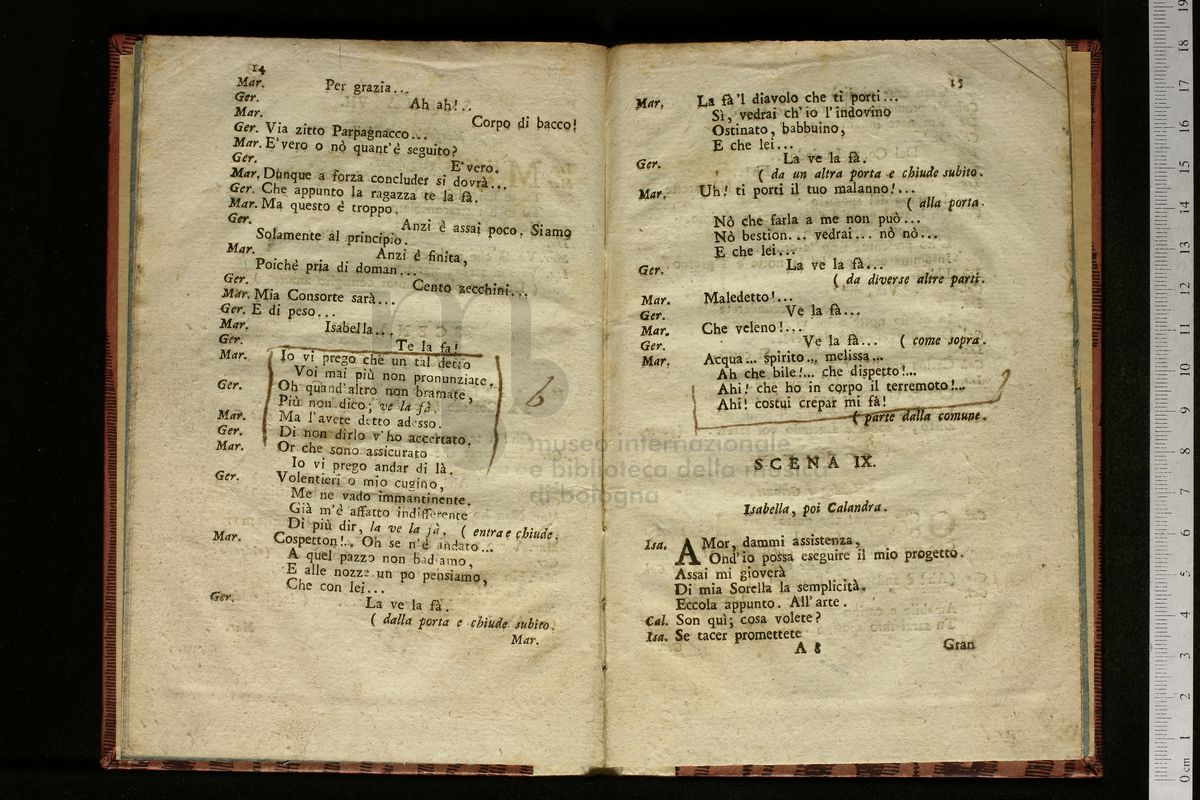 14
Mar. Per grazia...
Ger. Ah ah!..
Mar. Corpo di bacco!
Ger. Via zitto Parpagnacco...
Mar. E'vero o nò quant'è seguito?
Ger. E'vero.
Mar. Dunque a forza concluder si dovrà...
Ger. Che appunto la ragazza te la fà.
Mar. Ma questo è troppo.
Ger. Anzi è assai poco. Siamo
Solamente al principio.
Mar. Anzi è finita,
Poichè pria di doman...
Ger. Cento zecchini...
Mar. Mia Consorte sarà...
Ger. E di peso...
Mar. Isabella...
Ger. Te la fa!
Mar. Io vi prego che un tal detto
Voi mai più non pronunziate.
Ger. Oh quand'altro non bramate,
Più non dico; ve la fà.
Mar. Ma l'avete detto adesso.
Ger. Di non dirlo v'ho accertato.
Mar. Or che sono assicurato
Io vi prego andar di là.
Ger. Volentieri o mio cugino,
Me ne vado immantinente.
Già m'è affatto indifferente
Di più dir, la ve la fà. ( entra e chiude.
Mar. Cospetton!.. Oh se n'è andato...
A quel pazzo non badiamo,
E alle nozze un po pensiamo,
Che con lei...
Ger. La ve la fà.
( dalla porta e chiude subito.
Mar.
b
15
Mar. La fà 'l diavolo che ti porti...
Sì, vedrai ch'io l'indovino
Ostinato, babbuino,
E che lei...
Ger. La ve la fà.
( da un altra porta e chiude subito.
Mar. Uh! ti porti il tuo malanno!...
( alla porta.
Nò che farla a me non può...
Nò bestion... vedrai... nò nò...
E che lei...
Ger. La ve la fà...
( da diverse altre parti.
Mar. Maledetto!...
Ger. Ve la fà...
Mar. Che veleno!...
Ger. Ve la fà... ( come sopra.
Mar. Acqua... spirito... melissa...
Ah che bile!... che dispetto!...
Ahi! che ho in corpo il terremoto!...
Ahi! costui crepar mi fà!
( parte dalla comune.
SCENA IX.
Isabella, poi Calandra.
Isa. AMor, dammi assistenza,
Ond'io possa eseguire il mio progetto.
Assai mi gioverà
Di mia Sorella la semplicità.
Eccola appunto. All'arte.
Cal. Son quì; cosa volete?
Isa. Se tacer promettete
A 8 Gran
museo internazionale
e biblioteca della musica
di bologna
0 cm 1 2 3 4 5 6 7 8 9 10 11 12 13 14 15 16 17 18 19